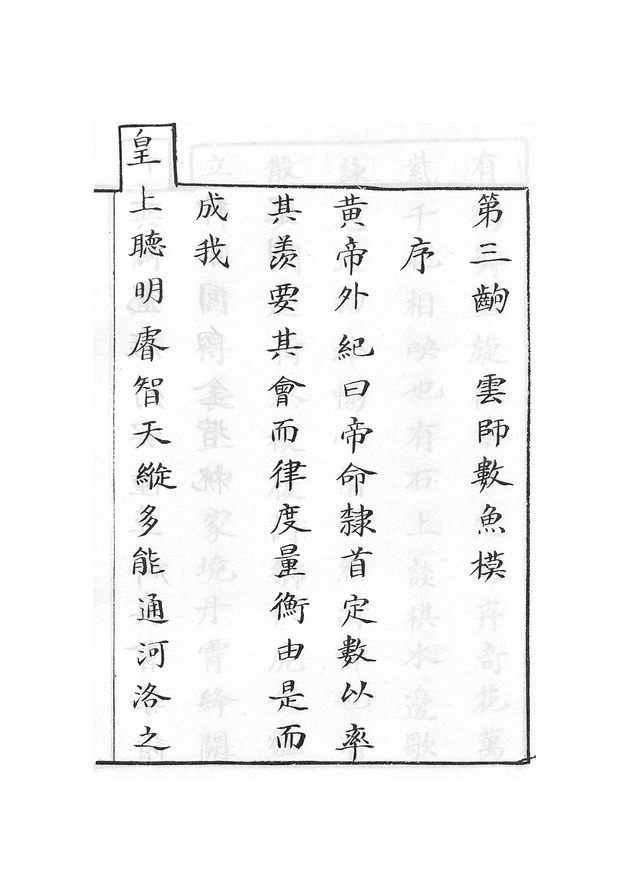 第三齣 雲師數魚模
序
黃帝外紀曰帝命隸首定數以率
其羨要其會而律度量衡由是而
成我
皇上聰明睿智天縱多能通河洛之